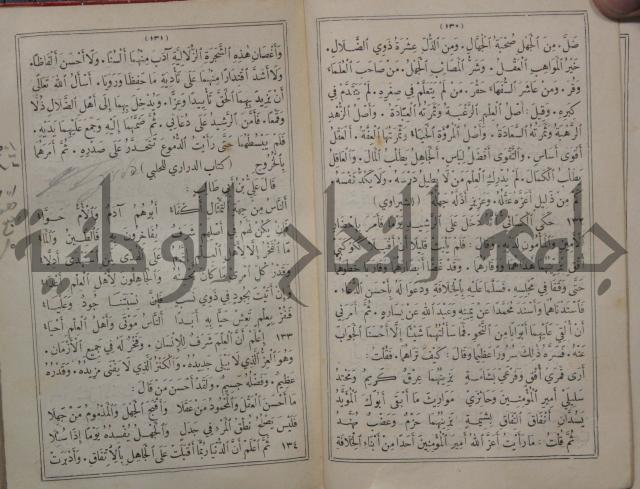 (١٣٠)
ضَلَّ. مِنَ الْجَهْلِ صُحْبَةُ الْجُهَّالِ. وَمِنَ الذُّلِّ عِشْرَةُ ذَوِي الضَّلَالِ.
خَيْرُ الْمَوَاهِبِ الْعَقْلُ. وَشَرُّ الْمَصَائِبِ الْجَهْلُ. مَنْ صَاحَبَ الْعُلَمَاءَ
وُقِّرَ. وَمَنْ عَاشَرَ السُّفَهَاءَ حُقِّرَ. مَنْ لَمْ يَتَعَلَّمْ فِي صِغَرِهِ لَمْ يَتَقَدَّمْ فِي
كِبَرِهِ. وَقِيلَ: أَصْلُ الْعِلْمِ الرَّغْبَةُ وَثَمَرَتُهُ الْعِبَادَةُ. وَأَصْلُ الزُّهْدِ
الرَّهْبَةُ وَثَمَرَتُهُ السَّعَادَةُ. وَأَصْلُ الْمُرُوَّةِ الْحَيَاءُ وَثَمَرَتُهَا الْعِفَّةُ. الْعَقْلُ
أَقْوَى أَسَاسٍ. وَالتَّقْوَى أَفْضَلُ لِبَاسٍ. الْجَاهِلُ يَطْلُبُ الْمَالَ. وَالْعَاقِلُ
يَطْلُبُ الْكَمَالَ. لَمْ يُدْرِكِ الْعِلْمَ مَنْ لَا يُطِيلُ دَرْسَهُ. وَلَا يَكُدُّ نَفْسَهُ
كَمْ مِنْ ذَلِيلٍ أَعَزَّهُ عَقْلُهُ. وَعَزِيزٍ أَذَلَّهُ جَهْلُهُ (الشبراوي)
١٣٢ حَكَى الْكِسَائِيُّ دَخَلَ عَلَى الرَّشِيدِ فَأَمَرَ بِإِحْضَارِ
الْأَمِينِ وَالْمَأْمُونِ قَالَ: فَلَمْ يَلْبَثْ قَلِيلًا أَنْ أَقْبَلَا
حَتَّى وَقَفَا فِي مَجْلِسِهِ. فَسَلَّمَا عَلَيْهِ بِالْخِلَافَةِ وَدَعَوَا لَهُ بِأَحْسَنِ الدُّعَاءِ.
فَاسْتَدْنَاهُمَا وَأَسْنَدَ مُحَمَّدًا عَنْ يَمِينِهِ وَعَبْدَ اللهِ عَنْ يَسَارِهِ. ثُمَّ أَمَرَنِي
أَنْ أُلْقِيَ عَلَيْهِمَا أَبْوَابًا مِنَ النَّحْوِ. فَمَا سَأَلْتُهُمَا شَيْئًا إِلَّا أَحْسَنَا الْجَوَابَ
عَنْهُ. فَسَرَّهُ ذَلِكَ سُرُورًا عَظِيمًا وَقَالَ: كَيْفَ تَرَاهُمَا. فَقُلْتُ:
أَرَى قَمَرَيْ أُفْقٍ وَفَرْعَيْ بَشَامَةٍ يَزِينُهُمَا عِرْقٌ كَرِيمٌ وَمَحْتِدُ
سَلِيلَيْ أَمِيرِ الْمُؤْمِنِينَ وَحَائِزَيْ مَوَارِيثَ مَا أَبْقَى النَّبِيُّ الْمُؤَيَّدُ
يَسُدَّانِ أَنْفَاقَ النِّفَاقِ بِشِيمَةٍ يَزِينُهُمَا حَزْمٌ وَعَضْبٌ مُهَنَّدُ
ثُمَّ قُلْتُ: مَا رَأَيْتُ أَعَزَّ اللهُ أَمِيرَ الْمُؤْمِنِينَ أَحَدًا مِنْ أَبْنَاءِ الْخِلَافَةِ
(١٣١)
وَأَغْصَانِ هَذِهِ الشَّجَرَةِ الزُّلَالِيَّةِ آدَبَ مِنْهُمَا أَلْسُنًا. وَلَا أَحْسَنَ أَلْفَاظًا.
وَلَا أَشَدَّ اقْتِدَارًا مِنْهُمَا عَلَى تَأْدِيَةِ مَا حَفِظَا وَرَوَيَا. أَسْأَلُ اللهَ تَعَالَى
أَنْ يَزِيدَ بِهِمَا الْحَقَّ تَأْيِيدًا وَعِزًّا. وَيُدْخِلَ بِهِمَا عَلَى أَهْلِ الضَّلَالِ ذُلًّا
وَقَمْعًا. فَأَمَّنَ الرَّشِيدُ عَلَى دُعَائِي. ثُمَّ ضَمَّهُمَا إِلَيْهِ وَجَمَعَ عَلَيْهِمَا يَدَيْهِ.
فَلَمْ يَبْسُطْهُمَا حَتَّى رَأَيْتُ الدُّمُوعَ تَنْحَدِرُ عَلَى صَدْرِهِ. ثُمَّ أَمَرَهُمَا
بِالْخُرُوجِ (كتاب الدراري للحلبي)
قَالَ عَلِيُّ بْنُ أَبِي طَالِبٍ:
النَّاسُ مِنْ جِهَةِ التِّمْثَالِ أَكْفَاءُ أَبُوهُمُ آدَمٌ وَالْأُمُّ حَوَّاءُ
فَإِنْ يَكُنْ لَهُمْ فِي أَصْلِهِمْ شَرَفٌ يُفَاخِرُونَ بِهِ فَالطِّينُ وَالْمَاءُ
مَا الْفَخْرُ إِلَّا لِأَهْلِ الْعِلْمِ
وَقَدْرُ كُلِّ امْرِئٍ مَا كَانَ يُحْسِنُهُ وَالْجَاهِلُونَ لِأَهْلِ الْعِلْمِ أَعْدَاءُ
وَإِنْ أَتَيْتَ بِجُودٍ فِي ذَوِي نَسَبٍ فَإِنَّ نِسْبَتَنَا جُودٌ وَعَلْيَاءُ
فَفُزْ بِعِلْمٍ تَعِشْ حَيًّا بِهِ أَبَدًا النَّاسُ مَوْتَى وَأَهْلُ الْعِلْمِ أَحْيَاءُ
١٣٣ اِعْلَمْ أَنَّ الْعِلْمَ شَرَفٌ لِلْإِنْسَانِ. وَفَخْرٌ لَهُ فِي جَمِيعِ الْأَزْمَانِ.
وَهُوَ الْعِزُّ الَّذِي لَا يَبْلَى جَدِيدُهُ. وَالْكَنْزُ الَّذِي لَا يَفْنَى مَزِيدُهُ. وَقَدْرُهُ
عَظِيمٌ. وَفَضْلُهُ جَسِيمٌ. وَلَقَدْ أَحْسَنَ مَنْ قَالَ:
مَا أَحْسَنَ الْعَقْلَ وَالْمَحْمُودُ مَنْ عَقَلَا وَأَقْبَحَ الْجَهْلَ وَالْمَذْمُومُ مَنْ جَهِلَا
فَلَيْسَ يَصْلُحُ نُطْقُ الْمَرْءِ فِي جَدَلٍ وَالْجَهْلُ يُفْسِدُهُ يَوْمًا إِذَا سُئِلَا
١٣٤ ثُمَّ اعْلَمْ أَنَّ الدُّنْيَا رُبَّمَا أَقْبَلَتْ عَلَى الْجَاهِلِ بِالْاِتِّفَاقِ. وَأَدْبَرَتْ
جامعة النجاح الوطنية